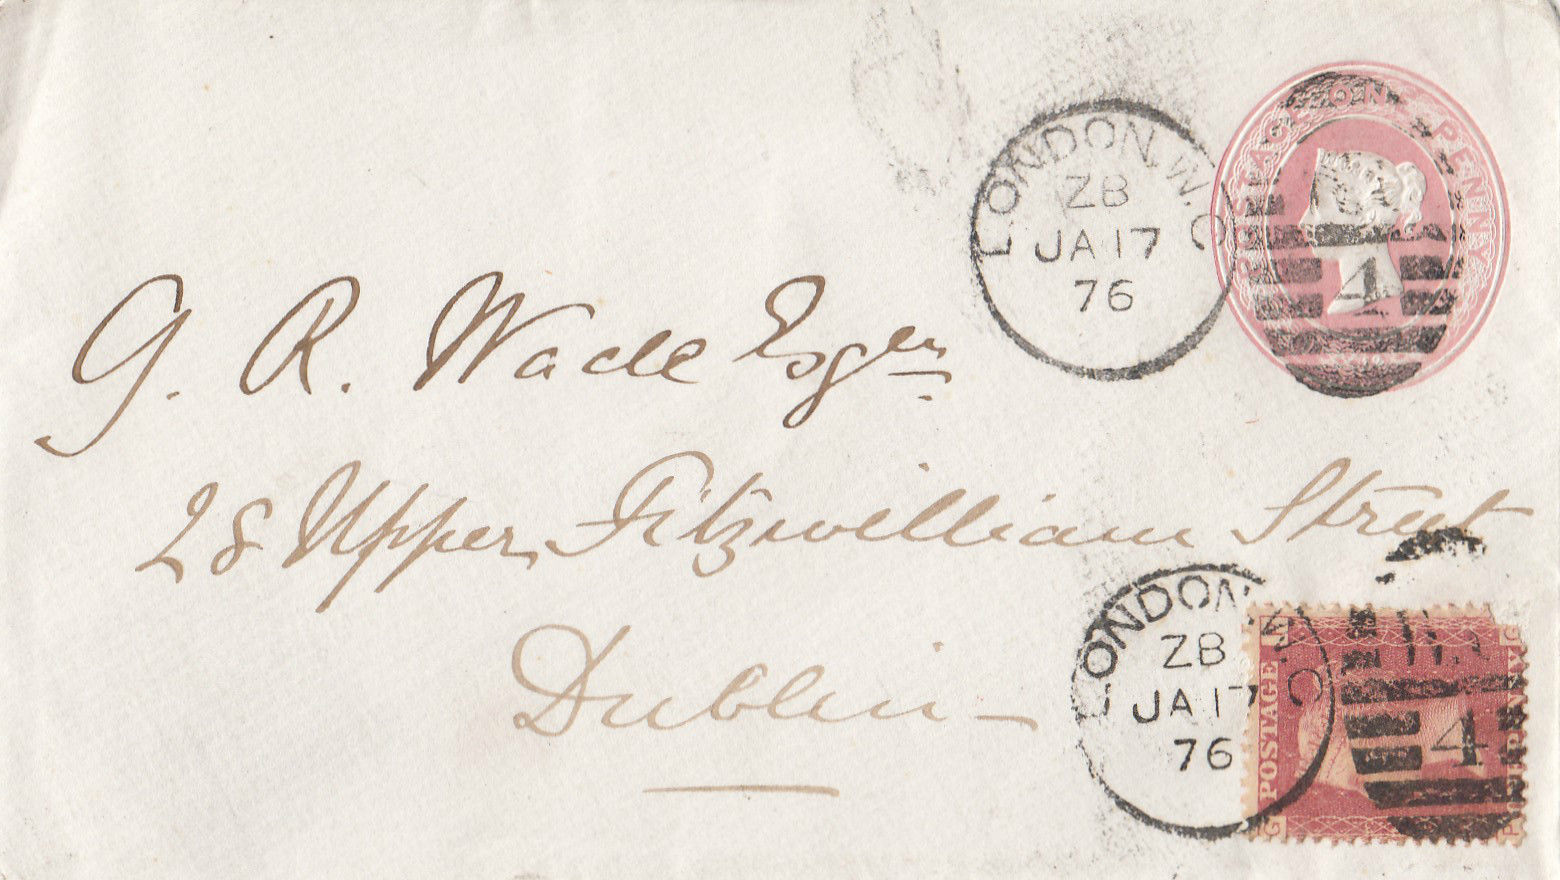 POSTAGE ONE PENNY
LONDON.W.C
ZB
JA 17
76
4
G. R. Wade Esqre
28 Upper Fitzwilliam Street
Dublin
LONDON.W.C
ZB
JA 17
76
4
POSTAGE
G